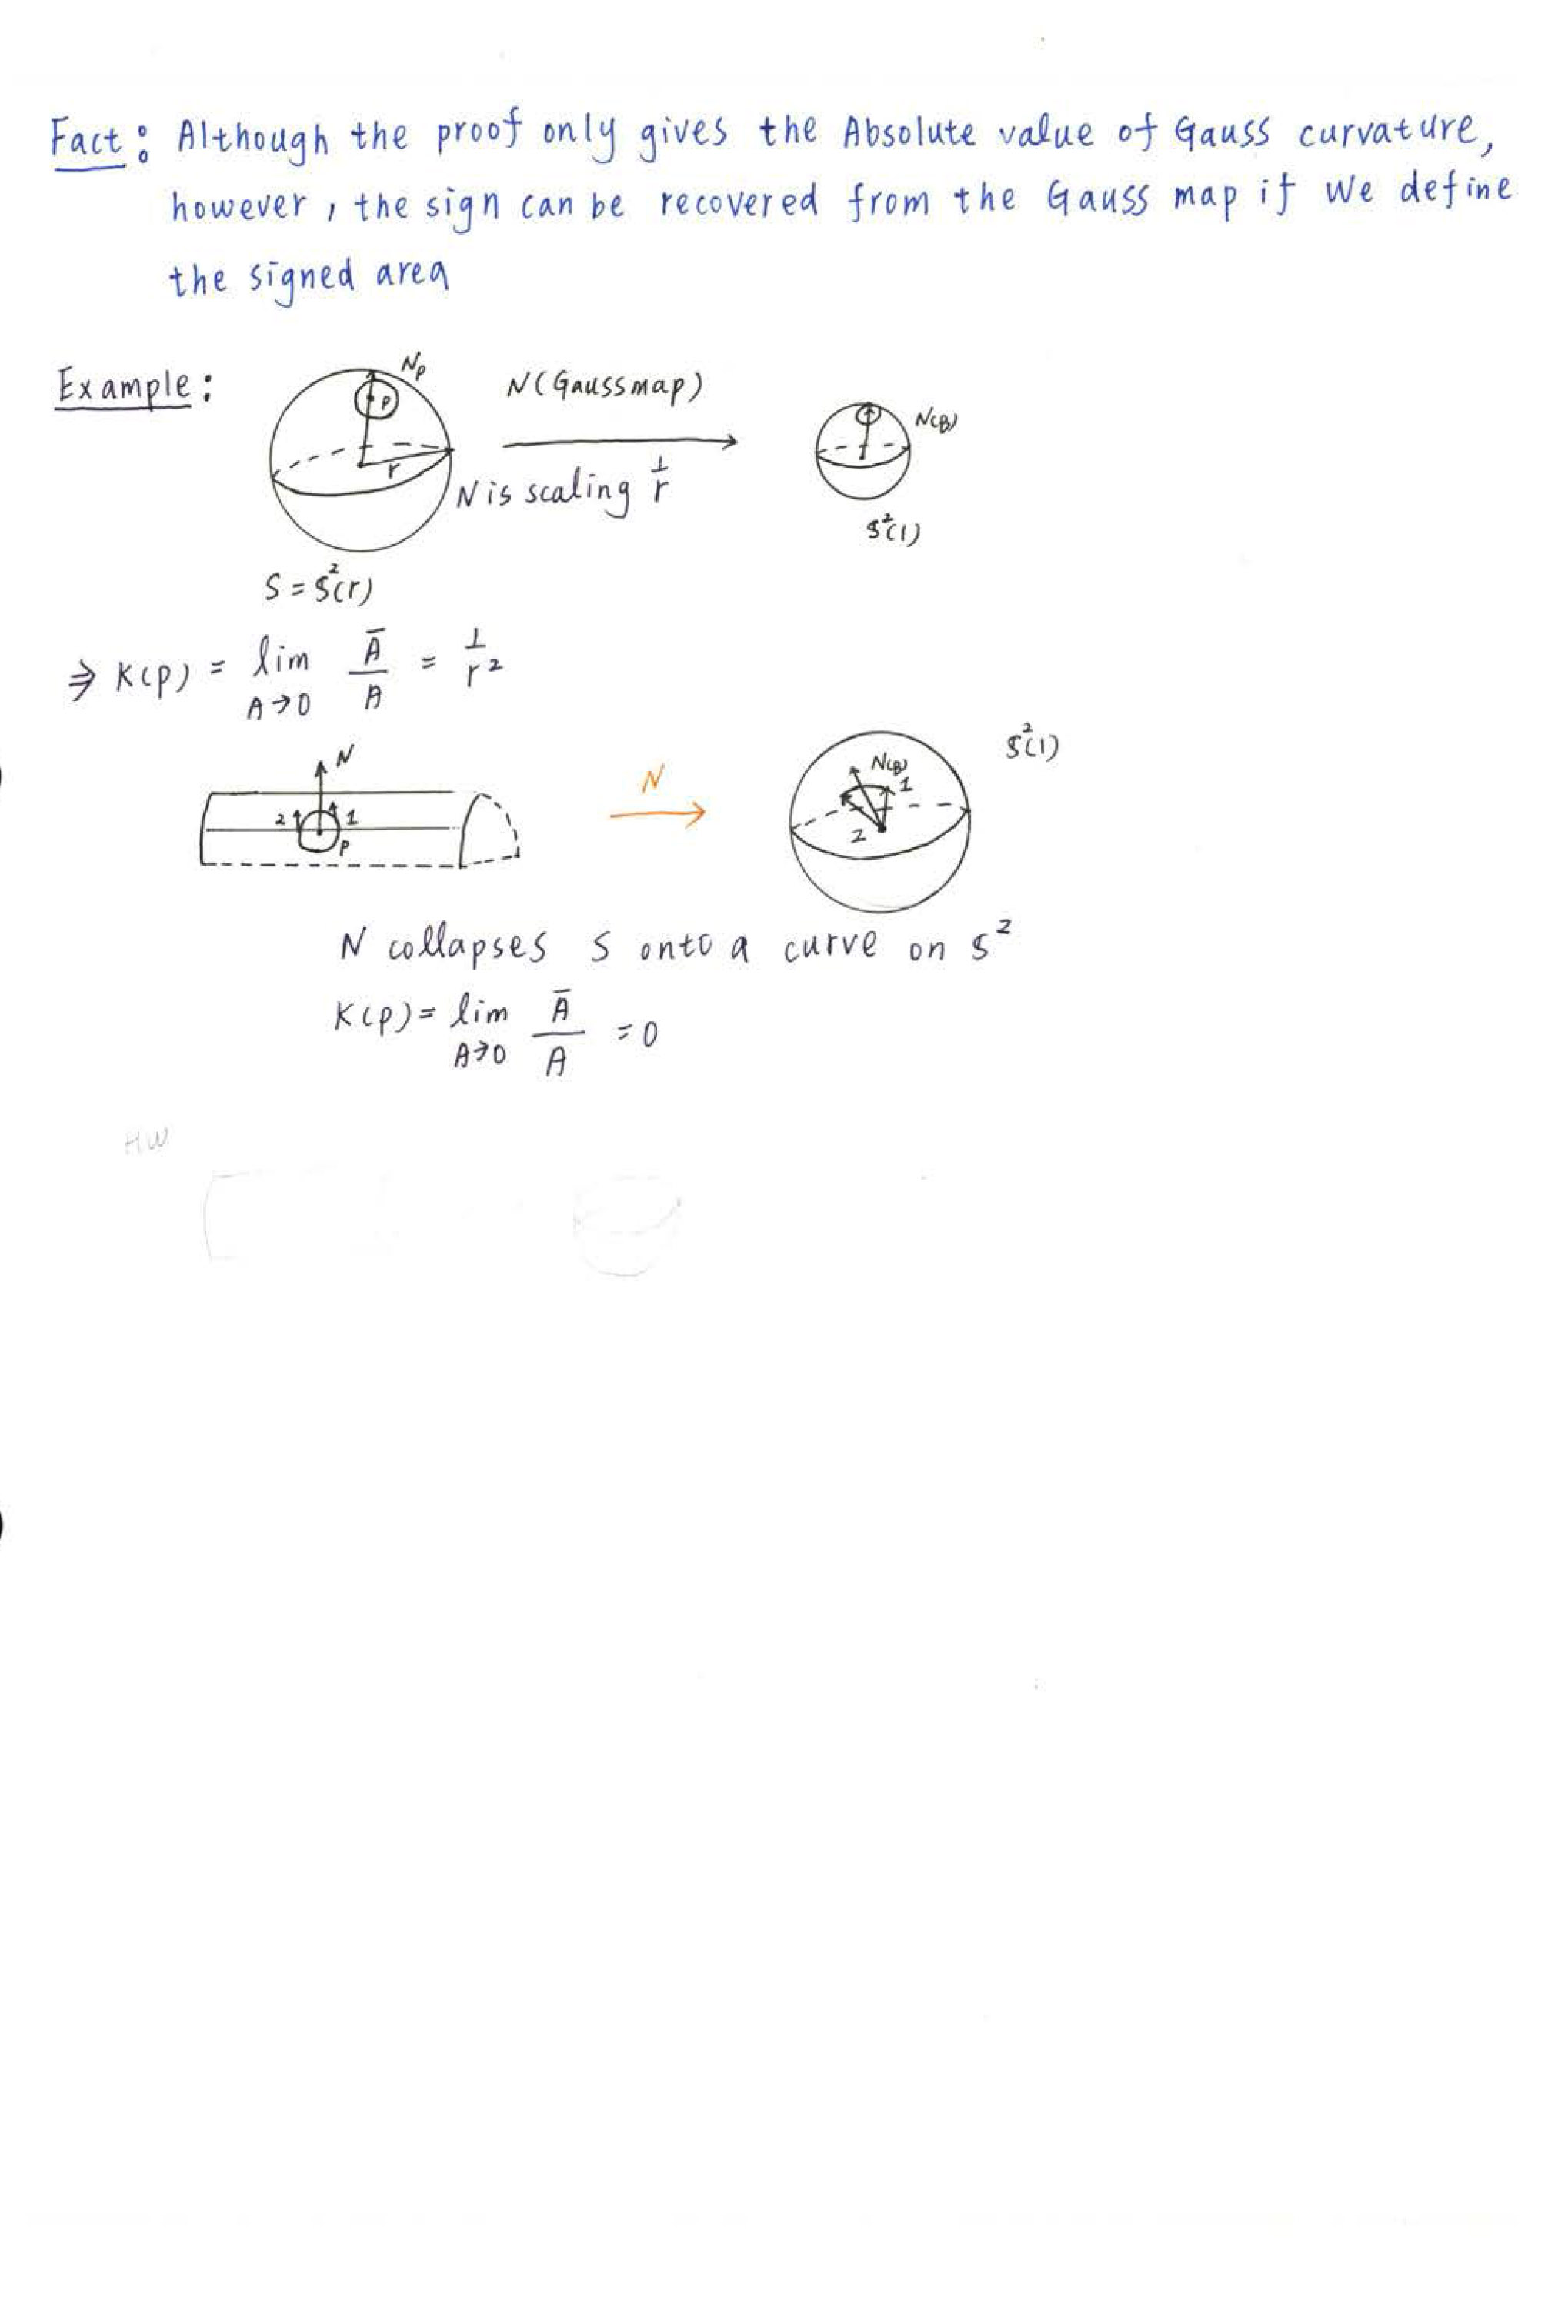 Fact: Although the proof only gives the Absolute value of Gauss curvature,
however, the sign can be recovered from the Gauss map if we define
the signed area
Example:
Np
P
r
N(Gauss map)
N is scaling 1/r
N(B)
S²(1)
S = S²(r)
⇒ K(p) = lim A→0 Ā/A = 1/r²
N
2 1
P
N
S²(1)
N(B)
1
2
N collapses S onto a curve on S²
K(p) = lim A→0 Ā/A = 0
HW